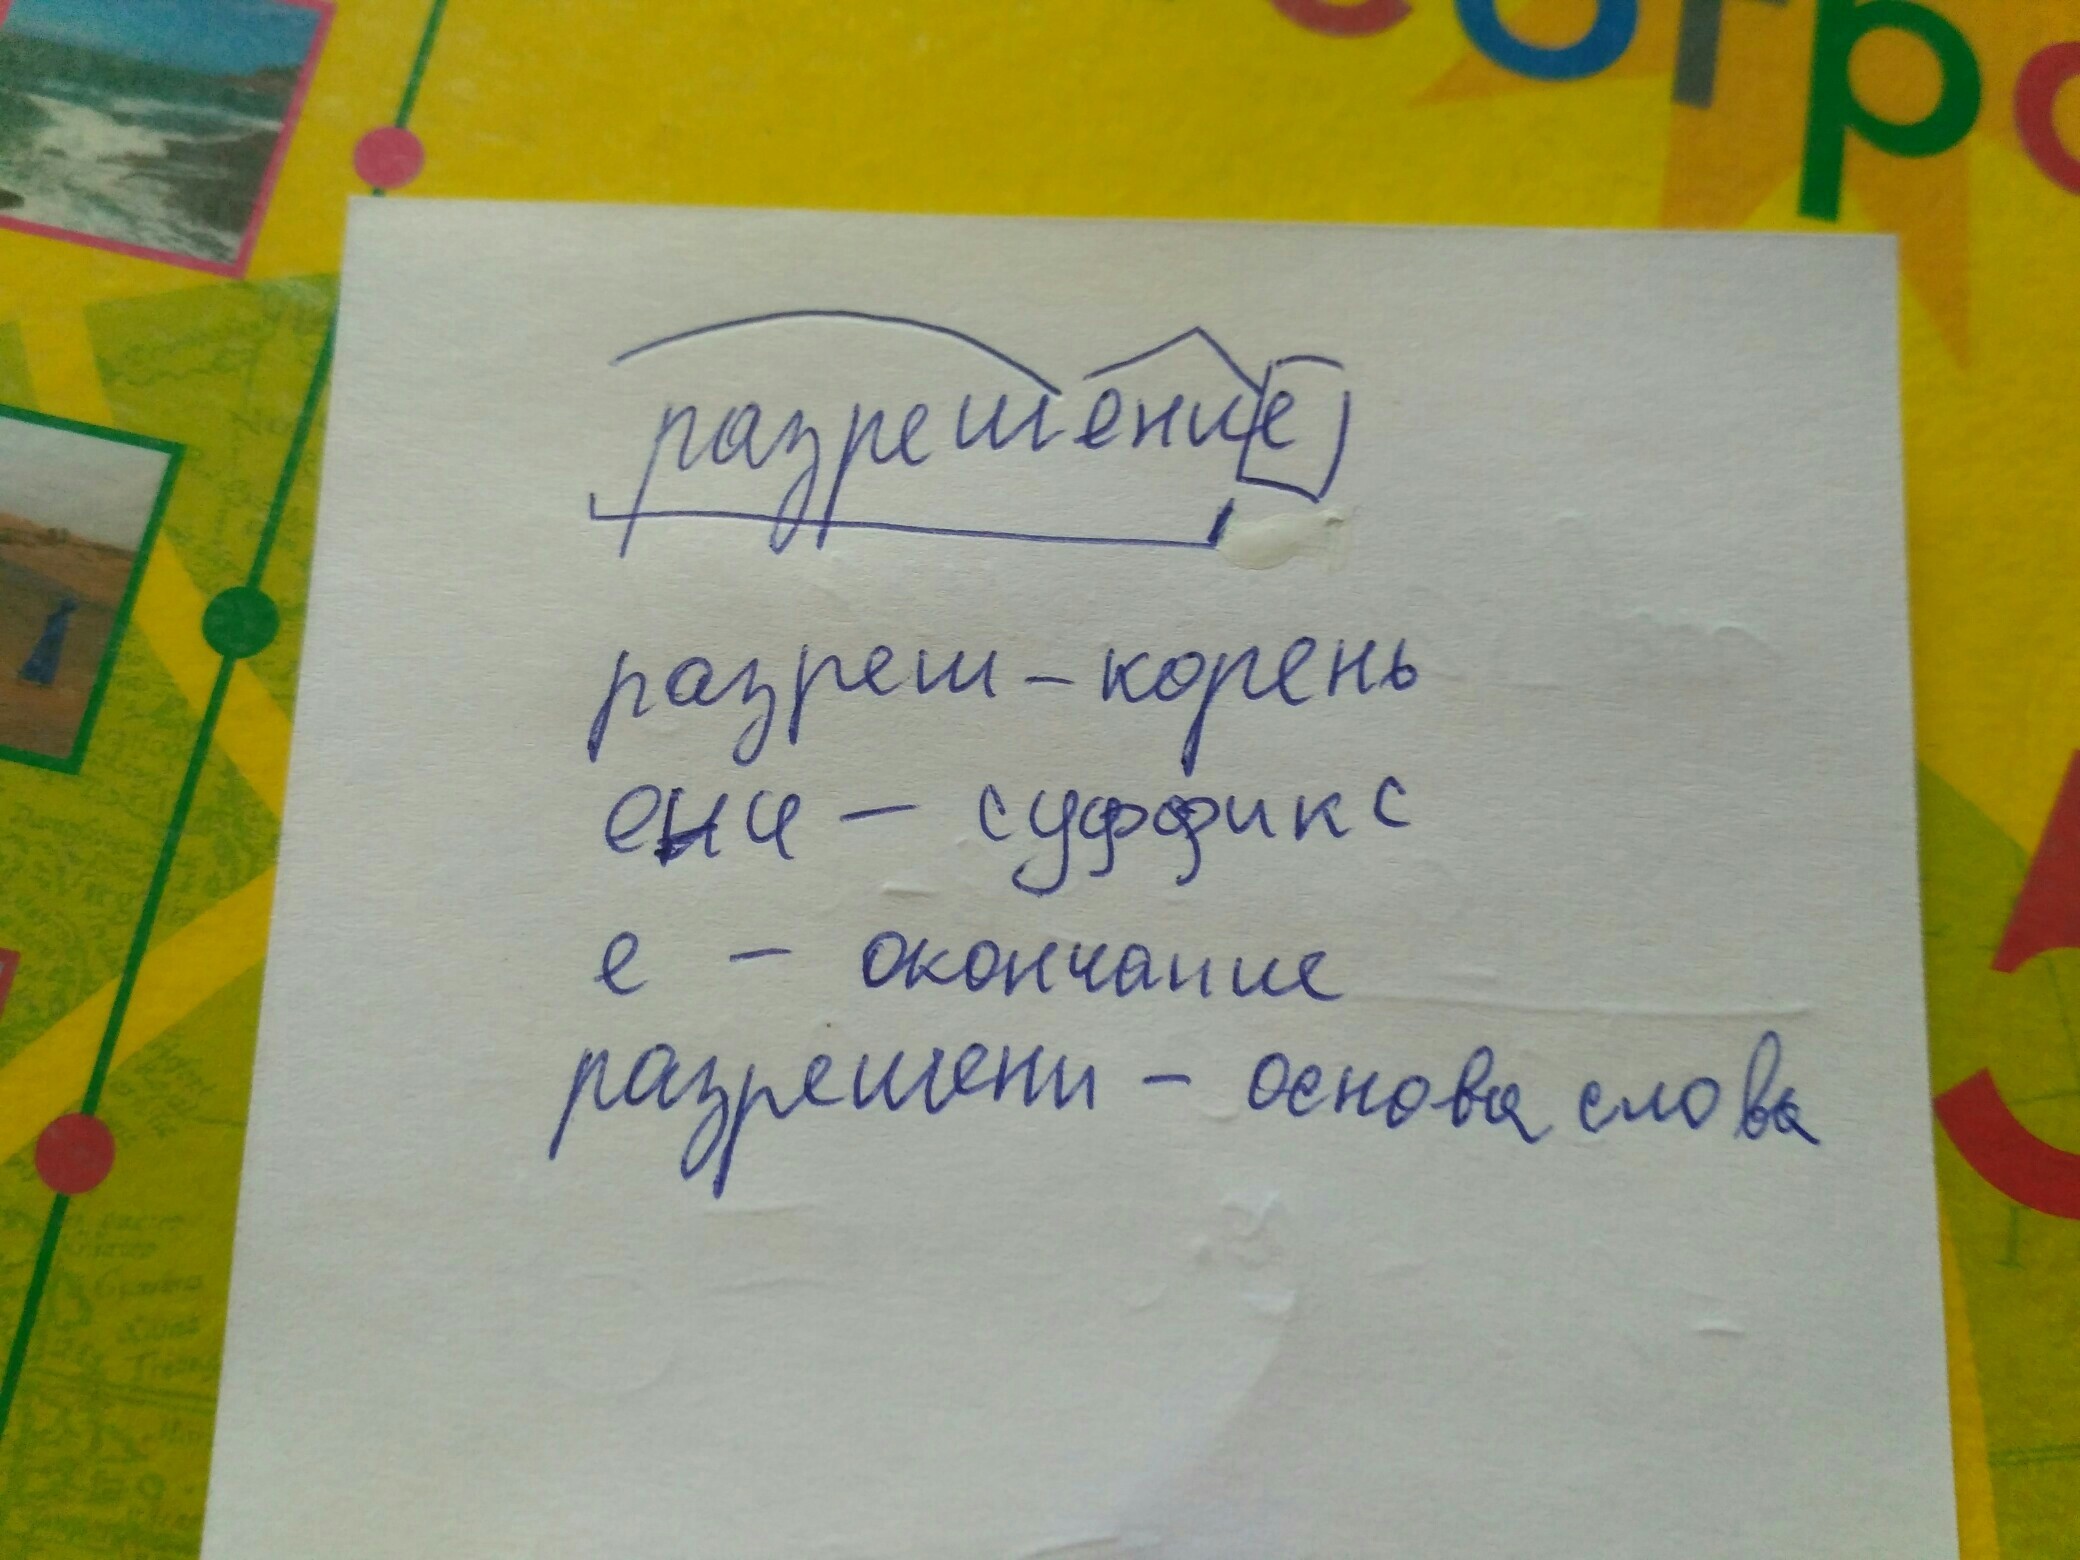 огра
разрешение
разреш – корень
ени – суффикс
е – окончание
разрешени – основа слова
5